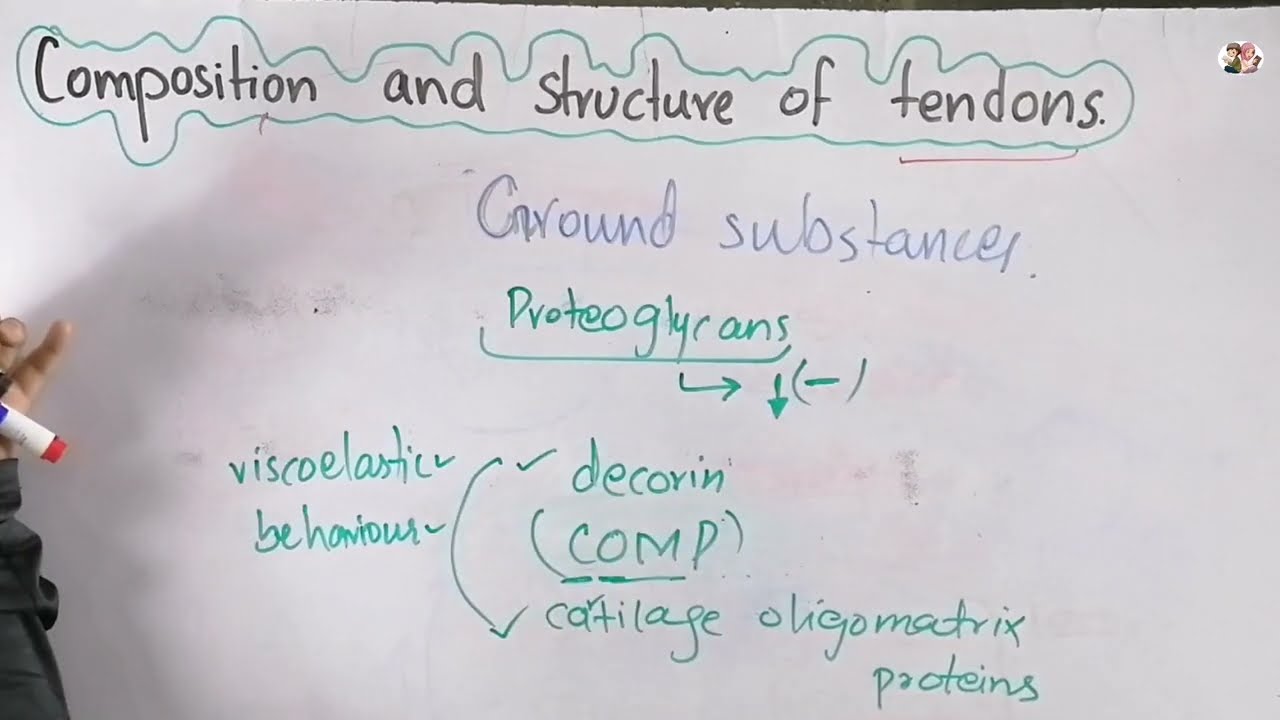 Composition and structure of tendons.
Ground substances.
Proteoglycans
↳ ↓(-)
viscoelastic ✓ decorin
behaviour (COMP)
✓ catilage oligomatrix
proteins